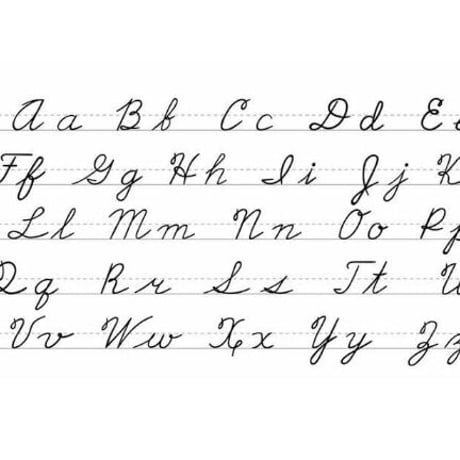 A a B b C c D d E e
F f G g H h I i J j K
L l M m N n O o P p
Q q R r S s T t U
V v W w X x Y y Z z